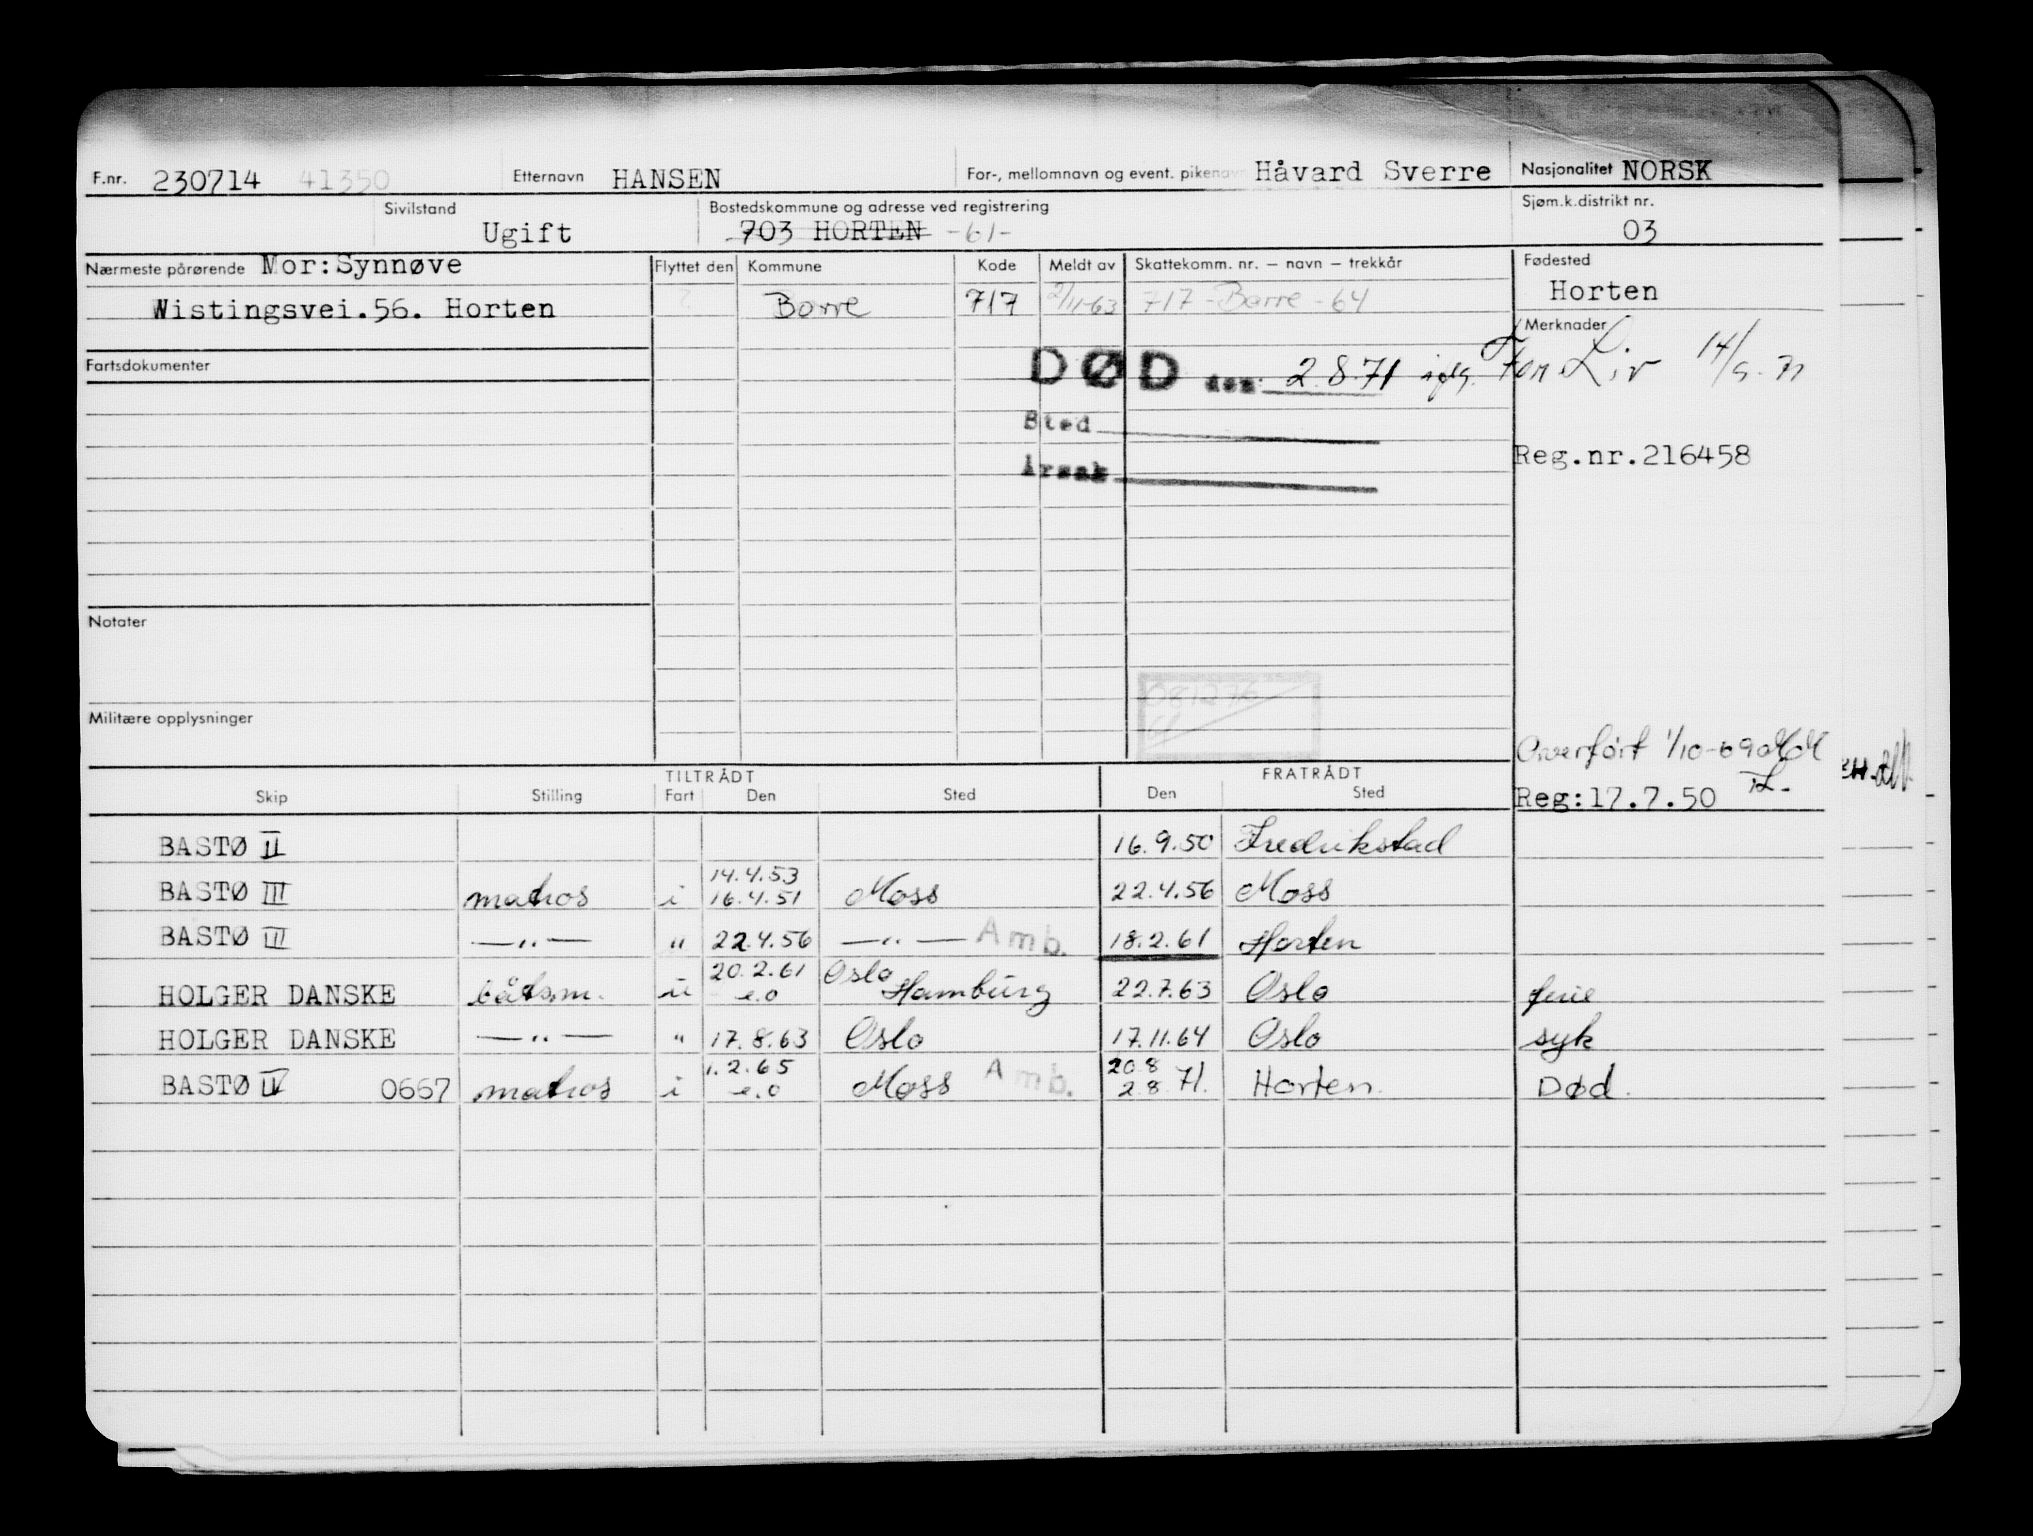 F.nr. 230714 41350 Etternavn HANSEN For-, mellomnavn og event. pikenavn Håvard Sverre Nasjonalitet NORSK
Sivilstand Ugift Bostedskommune og adresse ved registrering 703 HORTEN -61- Sjøm.k.distrikt nr. 03
Nærmeste pårørende Mor:Synnøve Flyttet den Kommune Kode Meldt av Skattekomm. nr. – navn – trekkår Fødested
Wistingsvei.56. Horten ? Borre 717 2/11-63 717 - Borre - 64 Horten
Merknader
Fartsdokumenter DØD den: 2.8.71 iflg. Fon Liv 14/9. 71
Sted
Årsak Reg.nr.216458
Notater
081276
Militære opplysninger
Overført 1/10-69
Reg:17.7.50
TILTRÅDT FRATRÅDT
Skip Stilling Fart Den Sted Den Sted
BASTØ II 16.9.50 Fredrikstad
14.4.53
BASTØ III matros i 16.4.51 Moss 22.4.56 Moss
BASTØ III —"— " 22.4.56 —"— Amb. 18.2.61 Horten
20.2.61 Oslo
HOLGER DANSKE båtsm. u e.o Hamburg 22.7.63 Oslo ferie
HOLGER DANSKE —"— " 17.8.63 Oslo 17.11.64 Oslo syk
1.2.65 20.8
BASTØ IV 0667 matros i e.o Moss Amb. 2.8 71. Horten. Død.